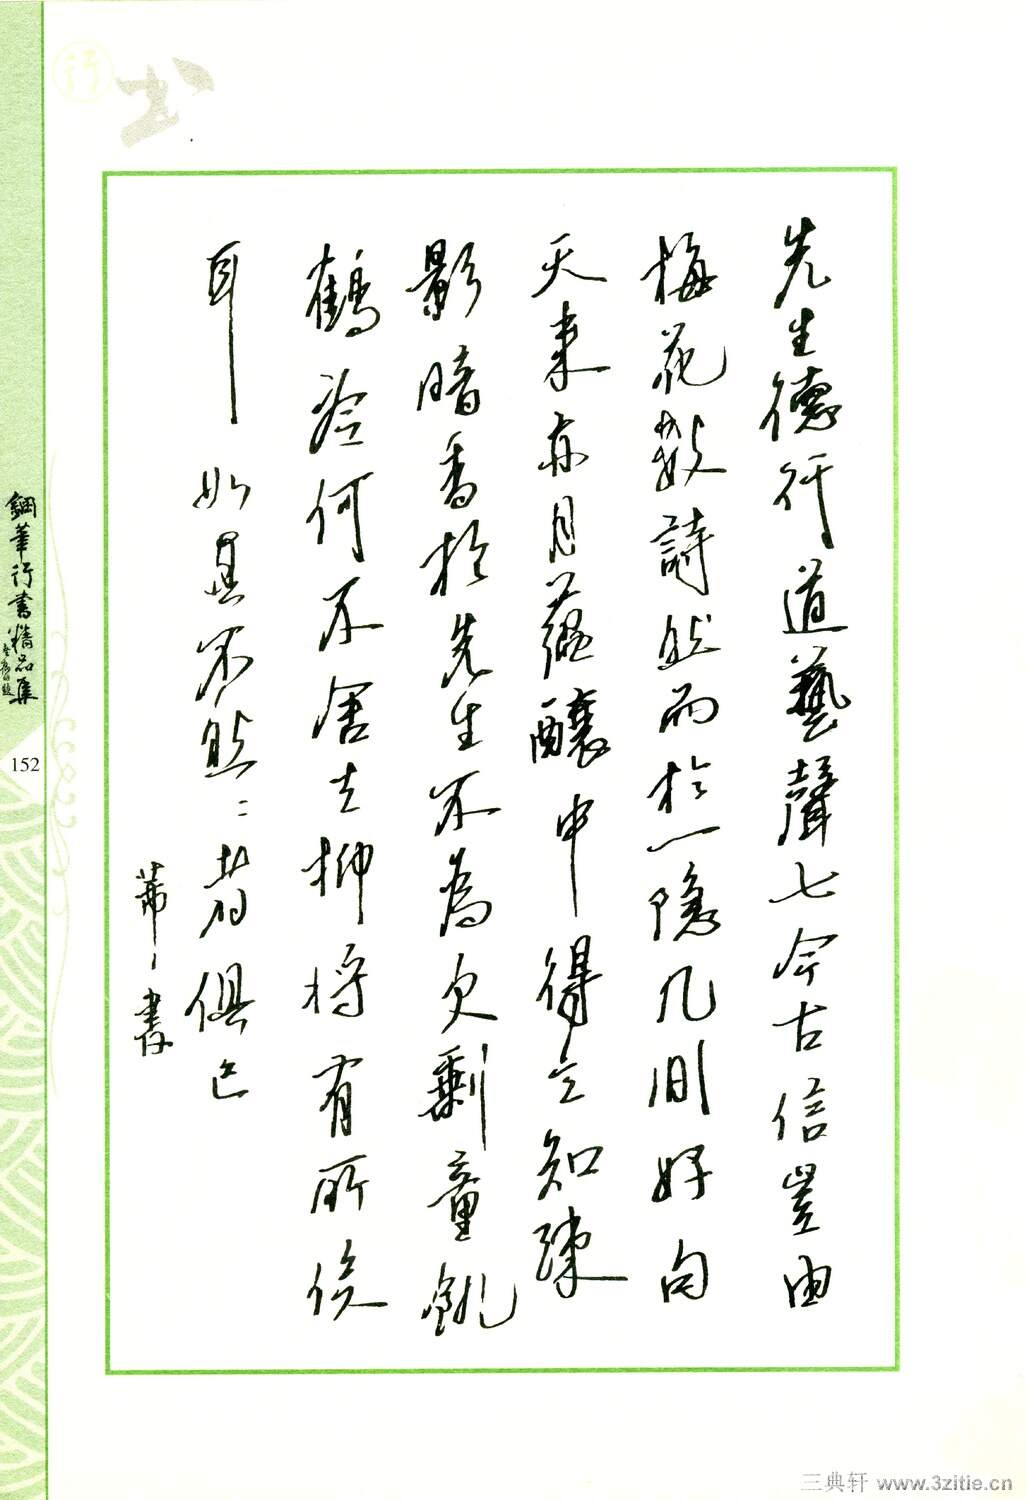 行书
先生德行道藝聲七今古信豈由
梅花数詩然而於一隐几間好句
天来亦月蕴釀中得之知疎
影暗香於先生不為欠剩童飢
鶴冷何不舍去抑将有所俟
耳 如是不然二者俱亡
鋼筆行書精品集
152
三典轩 www.3zitie.cn